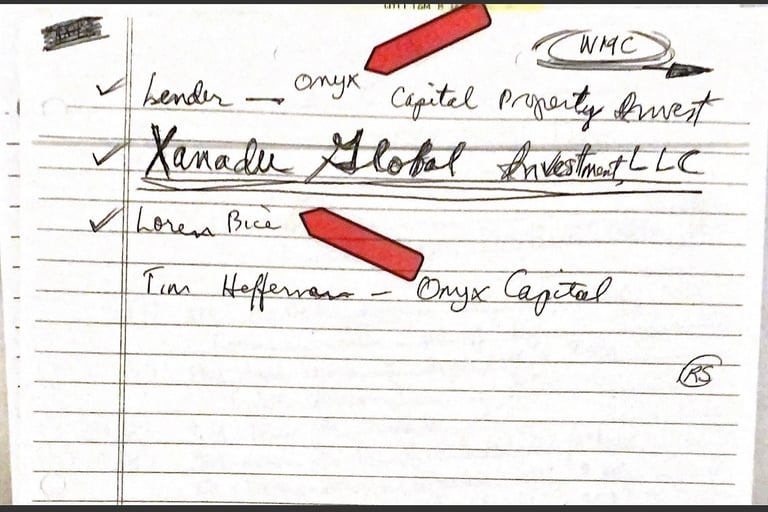 WMC
Lender — Onyx Capital Property Invest
Xanadu Global Investment, LLC
Loren Bice
Tim Heffernan - Onyx Capital
RS